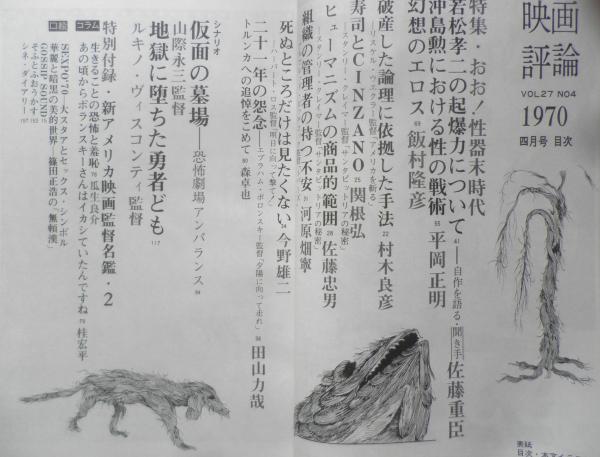 映画
評論
VOL.27 NO4
1970
四月号 目次
特集・おお!性器末時代
若松孝二の起爆力について 41 ──自作を語る・聞き手 佐藤重臣
沖島勲における性の戦術 55 平岡正明
幻想のエロス 69 飯村隆彦
破産した論理に依拠した手法 22 村木良彦
──リスケル・ウェクラー監督「アメリカを斬る」
寿司とCINZANO 25 関根弘
──スタンリー・クレイマー監督「サンタビットリアの秘密」
ヒューマニズムの商品的範囲 28 佐藤忠男
──スタンリー・クレイマー監督「サンタビットリアの秘密」
組織の管理者の持つ不安 31 河原畑寧
死ぬところだけは見たくない 34 今野雄二
──ハーバート・ロス監督「明日に向って撃て!」
二十一年の怨念 38 田山力哉
──エブラハム・ポロンスキー監督「夕陽に向って走れ」
トルンカへの追悼をこめて 80 森卓也
シナリオ
仮面の墓場──恐怖劇場アンバランス 94
山際永三監督
地獄に堕ちた勇者ども 117
ルキノ・ヴィスコンティ監督
特別付録・新アメリカ映画監督名鑑・2
コラム
生きることの恐怖と羞恥 76 瓜生良介
あの頃からポランスキーさんはイカシていたんですね 78 桂宏平
口絵
SEXPO'70──大スタアとセックス・シンボル
華麗と暗黒の美的世界──篠田正浩の「無頼漢」
GOSSIP SOUND
そふとふおうかす
シネ・ダイアリー
表紙